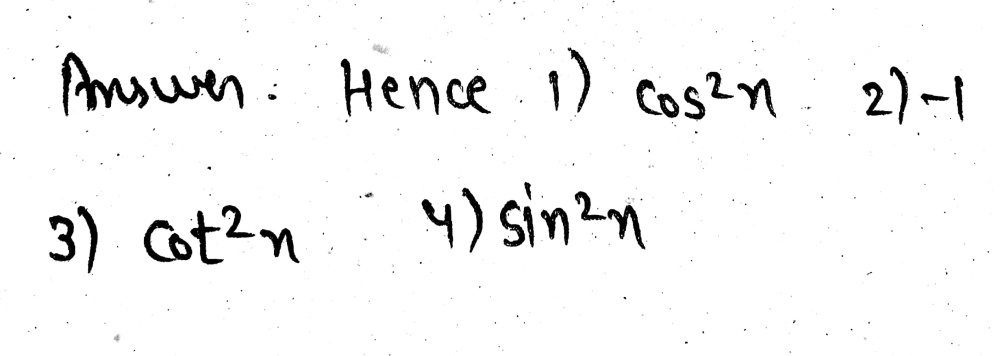 Answer: Hence 1) cos²x 2) -1
3) cot²x 4) sin²x